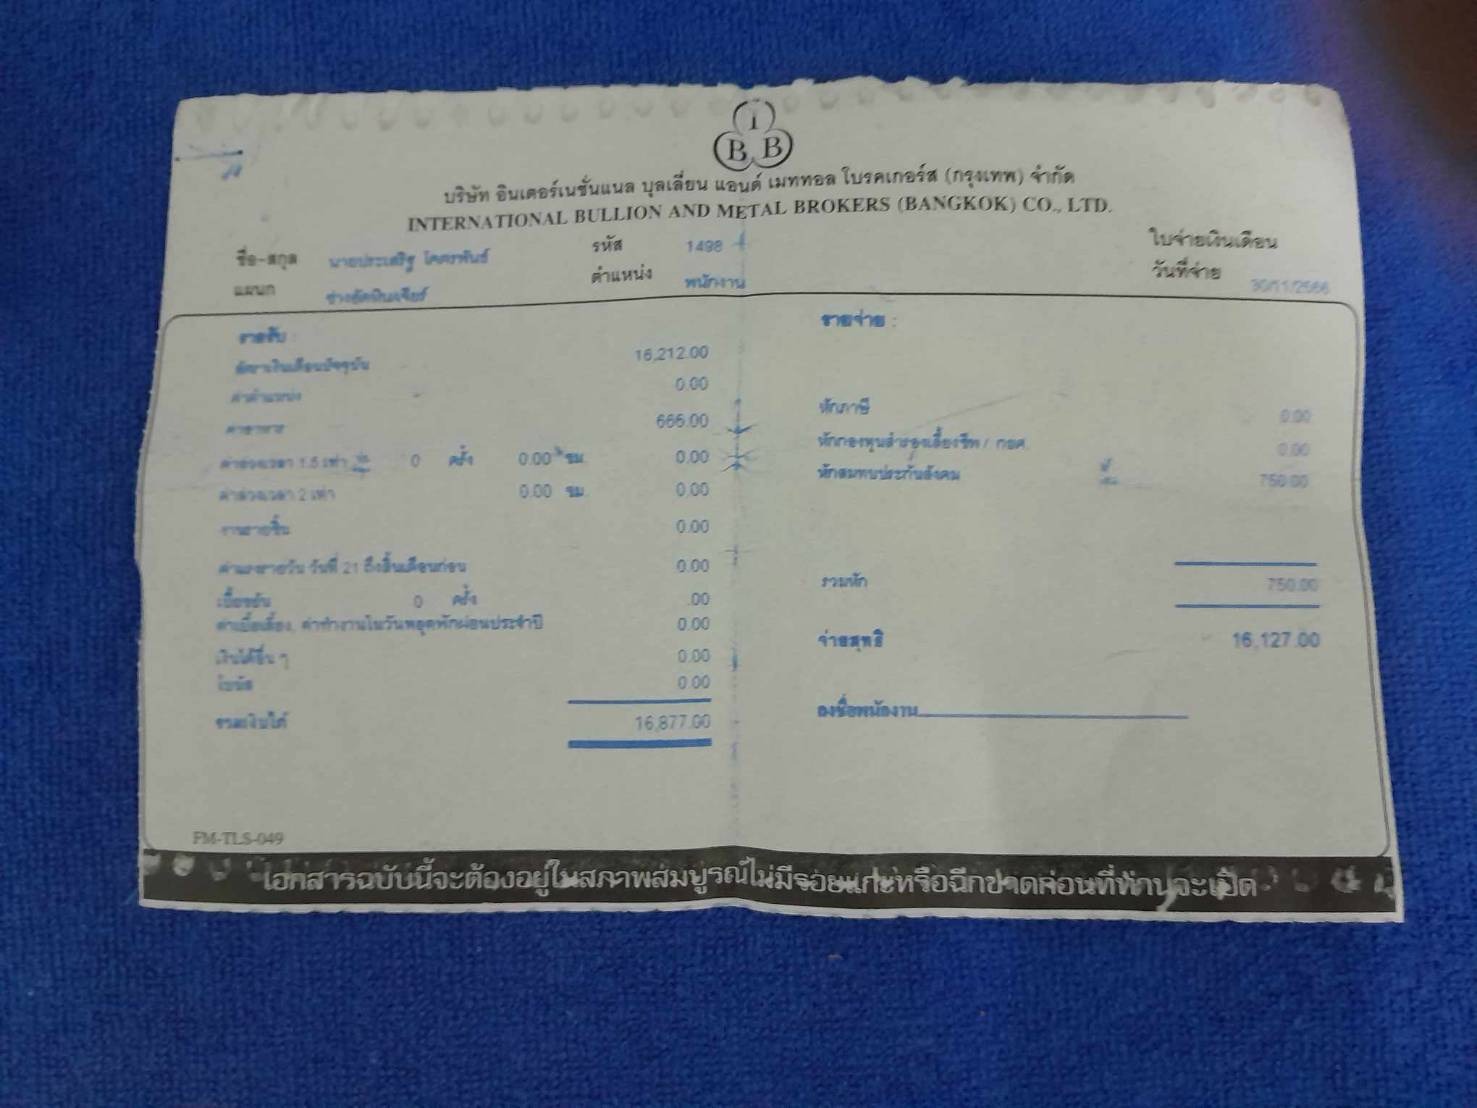 I
B B
บริษัท อินเตอร์เนชั่นแนล บุลเลี่ยน แอนด์ เมททอล โบรคเกอร์ส (กรุงเทพ) จำกัด
INTERNATIONAL BULLION AND METAL BROKERS (BANGKOK) CO., LTD.
ชื่อ-สกุล นายประเสริฐ โคตรพันธ์ รหัส 1498 ใบจ่ายเงินเดือน
แผนก ช่างขัดหินเจียร์ ตำแหน่ง พนักงาน วันที่จ่าย 30/11/2566
รายรับ : รายจ่าย :
อัตราเงินเดือนปัจจุบัน 16,212.00
ค่าตำแหน่ง 0.00 หักภาษี 0.00
ค่าอาหาร 666.00 หักกองทุนสำรองเลี้ยงชีพ / กยศ. 0.00
ค่าล่วงเวลา 1.5 เท่า 0 ครั้ง 0.00 ชม. 0.00 หักสมทบประกันสังคม 750.00
ค่าล่วงเวลา 2 เท่า 0.00 ชม. 0.00
งานรายชิ้น 0.00
ค่าแรงรายวัน วันที่ 21 ถึงสิ้นเดือนก่อน 0.00 รวมหัก 750.00
เบี้ยขยัน 0 ครั้ง .00
ค่าเบี้ยเลี้ยง, ค่าทำงานในวันหยุดพักผ่อนประจำปี 0.00 จ่ายสุทธิ 16,127.00
เงินได้อื่น ๆ 0.00
โบนัส 0.00 ลงชื่อพนักงาน
รวมเงินได้ 16,877.00
FM-TLS-049
เอกสารฉบับนี้จะต้องอยู่ในสภาพสมบูรณ์ไม่มีรอยแกะหรือฉีกขาดก่อนที่ท่านจะเปิด